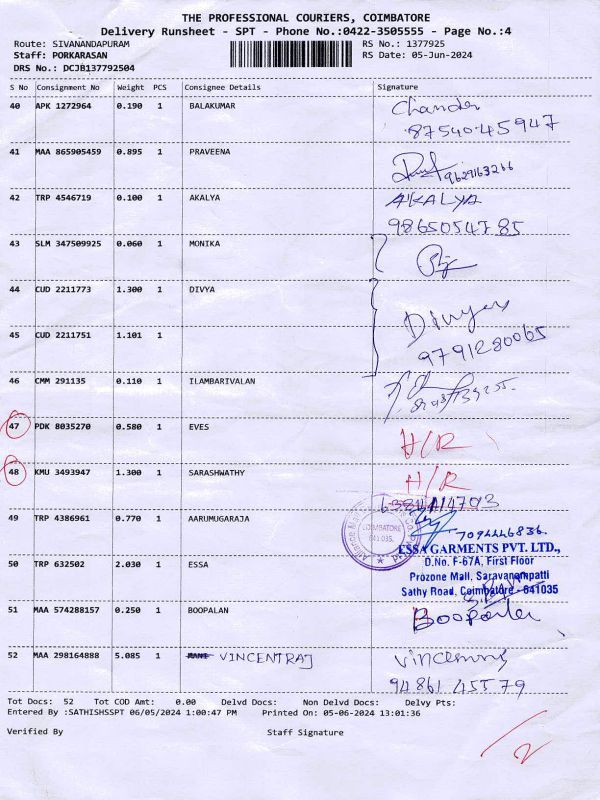 THE PROFESSIONAL COURIERS, COIMBATORE
Delivery Runsheet - SPT - Phone No.:0422-3505555 - Page No.:4
Route: SIVANANDAPURAM RS No.: 1377925
Staff: PORKARASAN RS Date: 05-Jun-2024
DRS No.: DCJB137792504
S No Consignment No Weight PCS Consignee Details Signature
40 APK 1272964 0.190 1 BALAKUMAR Chander
8754045947
41 MAA 865905459 0.895 1 PRAVEENA
9629163266
42 TRP 4546719 0.100 1 AKALYA AKALYA
9865054785
43 SLM 347509925 0.060 1 MONIKA
44 CUD 2211773 1.300 1 DIVYA Divya
45 CUD 2211751 1.101 1 9791280065
46 CMM 291135 0.110 1 ILAMBARIVALAN
47 PDK 8035270 0.580 1 EVES H/R
48 KMU 3493947 1.300 1 SARASHWATHY H/R
49 TRP 4386961 0.770 1 AARUMUGARAJA
COIMBATORE
641 035.
ESSA GARMENTS PVT. LTD.,
50 TRP 632502 2.030 1 ESSA D.No. F-67A, First Floor
Prozone Mall, Saravanampatti
Sathy Road, Coimbatore - 641035
51 MAA 574288157 0.250 1 BOOPALAN Boopalan
52 MAA 298164888 5.085 1 VINCENTRAJ
94861 45579
Tot Docs: 52 Tot COD Amt: 0.00 Delvd Docs: Non Delvd Docs: Delvy Pts:
Entered By :SATHISHSSPT 06/05/2024 1:00:47 PM Printed On: 05-06-2024 13:01:36
Verified By Staff Signature